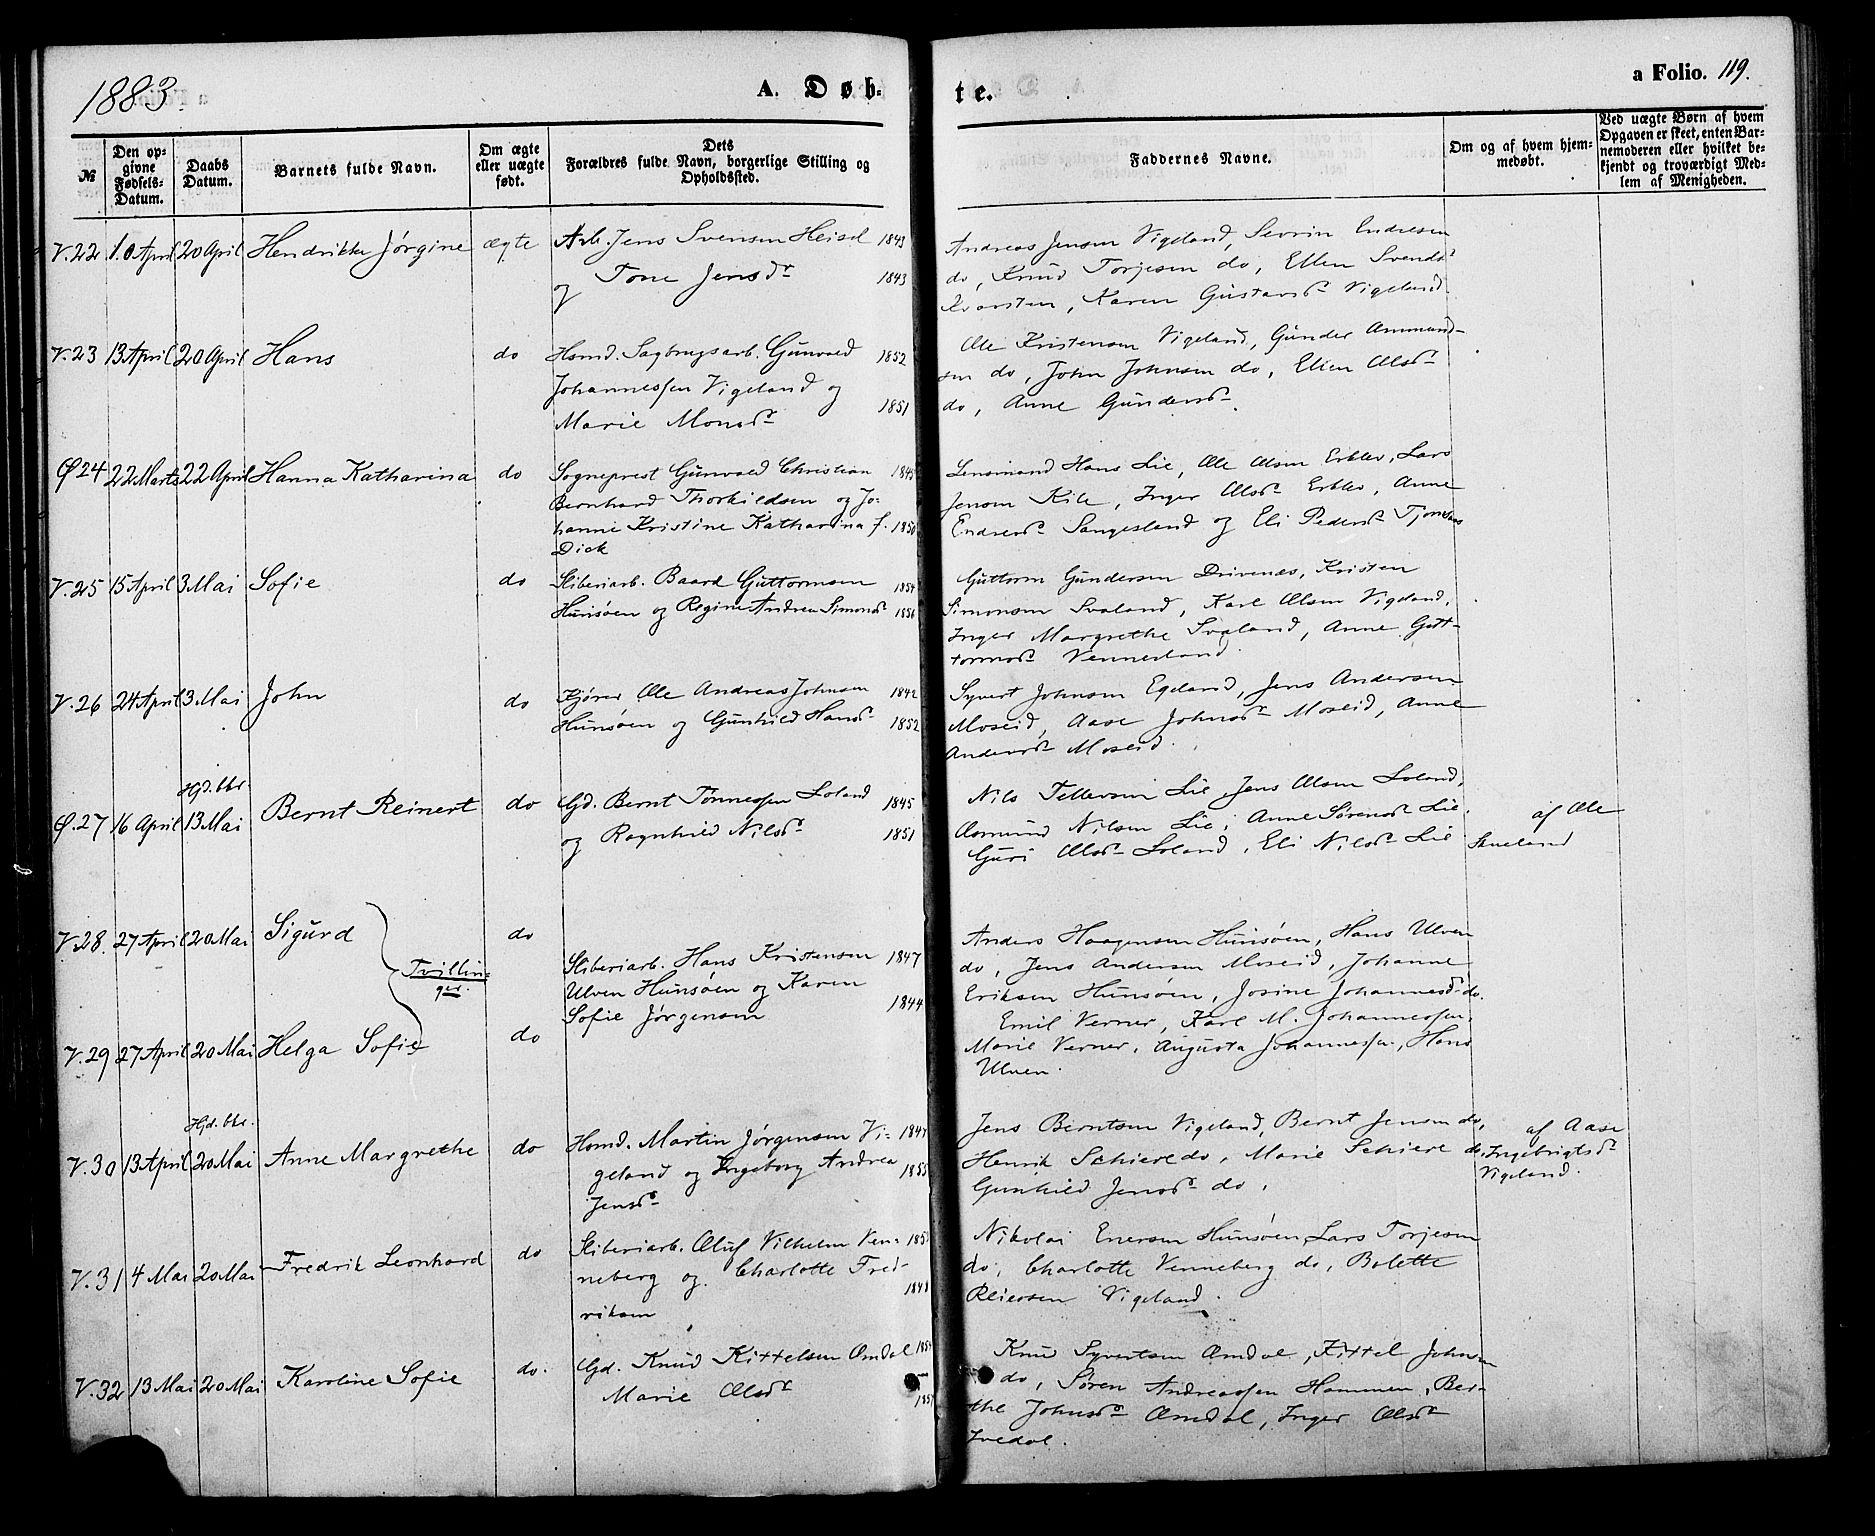 1883
A. Døb-
te.
a Folio. 119.
№
Den opgivne Fødsels-Datum.
Daabs Datum.
Barnets fulde Navn.
Om ægte eller uægte født.
Dets Forældres fulde Navn, borgerlige Stilling og Opholdssted.
Faddernes Navne.
Om og af hvem hjemmedøbt.
Ved uægte Børn af hvem Opgaven er skeet, enten Barnemoderen eller hvilket bekjendt og troværdigt Medlem af Menigheden.
V.22 10 April 20 April Hendrikke Jørgine ægte Arb. Jens Svensen Heisel 1843
og Tone Jensdr 1843
Andreas Jensen Vigeland, Sevrin Endresen
do, Knud Torjesen do, Ellen Svendsdr
Kvarsten, Karen Gustavsdr Vigeland.
V.23 13 April 20 April Hans do Hsmd. Sagbrugsarb. Gunvald 1852
Johannessen Vigeland og
Marie Monsdr 1851
Ole Kristensen Vigeland, Gunder Ammund-
sen do, John Johnsen do, Ellen Olsdr
do, Anne Gundersdr.
Ø24 22 Marts 22 April Hanna Katharina do Sogneprest Gunvald Christian 1845
Bernhard Thorkildsen og Jo-
hanne Kristine Katharina f. 1850
Dick
Lensmand Hans Lie, Ole Olsen Erklev, Lars
Jensen Kile, Inger Olsdr Erklev, Anne
Endresdr Sangesland og Eli Pedersdr
V.25 15 April 3 Mai Sofie do Sliberiarb. Baard Guttormsen 1854
Hunsøen og Regine Andrea Simonsdr 1856
Guttorm Gundersen Drivenes, Kristen
Simonsen Svaland, Karl Olsen Vigeland,
Inger Margrethe Svaland, Anne Gut-
tormsdr Vennesland.
V.26 24 April 3 Mai John do Kjører Ole Andreas Johnsen 1842
Hunsøen og Gunhild Hansdr 1852
Syvert Johnsen Egeland, Jens Andersen
Moseid, Aase Johnsdr Moseid, Anne
Andersdr Moseid.
Hjd. bkr.
Ø.27 16 April 13 Mai Bernt Reinert do Gd. Bernt Tønnessen Loland 1845
og Ragnhild Nilsdr 1851
Nils Tellevsen Lie, Jens Olsen Loland,
Osmund Nilsen Lie, Anne Sørensdr Lie,
Guri Olsdr Loland, Eli Nilsdr Lie
af Ole
Skueland
V.28. 27 April 20 Mai Sigurd do
Tvillin-
ger.
Sliberiarb. Hans Kristensen 1847
Ulven Hunsøen og Karen
Sofie Jørgensen 1844
Anders Haagensen Hunsøen, Hans Ulven
do, Jens Andersen Moseid, Johanne
Eriksen Hunsøen, Josine Johannesdr do.
V.29 27 April 20 Mai Helga Sofie do
Emil Verner, Karl M. Johannessen,
Marie Verner, Augusta Johannessen, Hans
Ulven.
Hjd. bkr.
V.30 13 April 20 Mai Anne Margrethe do Hsmd. Martin Jørgensen Vi- 1847
geland og Ingeborg Andrea 1855
Jensdr
Jens Berntsen Vigeland, Bernt Jensen do,
Henrik Schiere do, Marie Schiere do,
Gunhild Jensdr do.
af Aase
Ingebrigtsdr
Vigeland.
V.31 4 Mai 20 Mai Fredrik Leonhard do Sliberiarb. Oluf Vilhelm Ven-
neberg og Charlotte Fred- 1848
riksen
Nikolai Enersen Hunsøen, Lars Torjesen
do, Charlotte Venneberg do, Bolette
Reiersen Vigeland.
V.32 13 Mai 20 Mai Karoline Sofie do. Gd. Knud Kittelsen Omdal 1854
Marie Olsdr
Knud Syvertsen Omdal, Kittel Johnsen
do, Søren Andreassen Hommen, Ber-
the Johnsdr Omdal, Inger Olsdr
Ivedal.